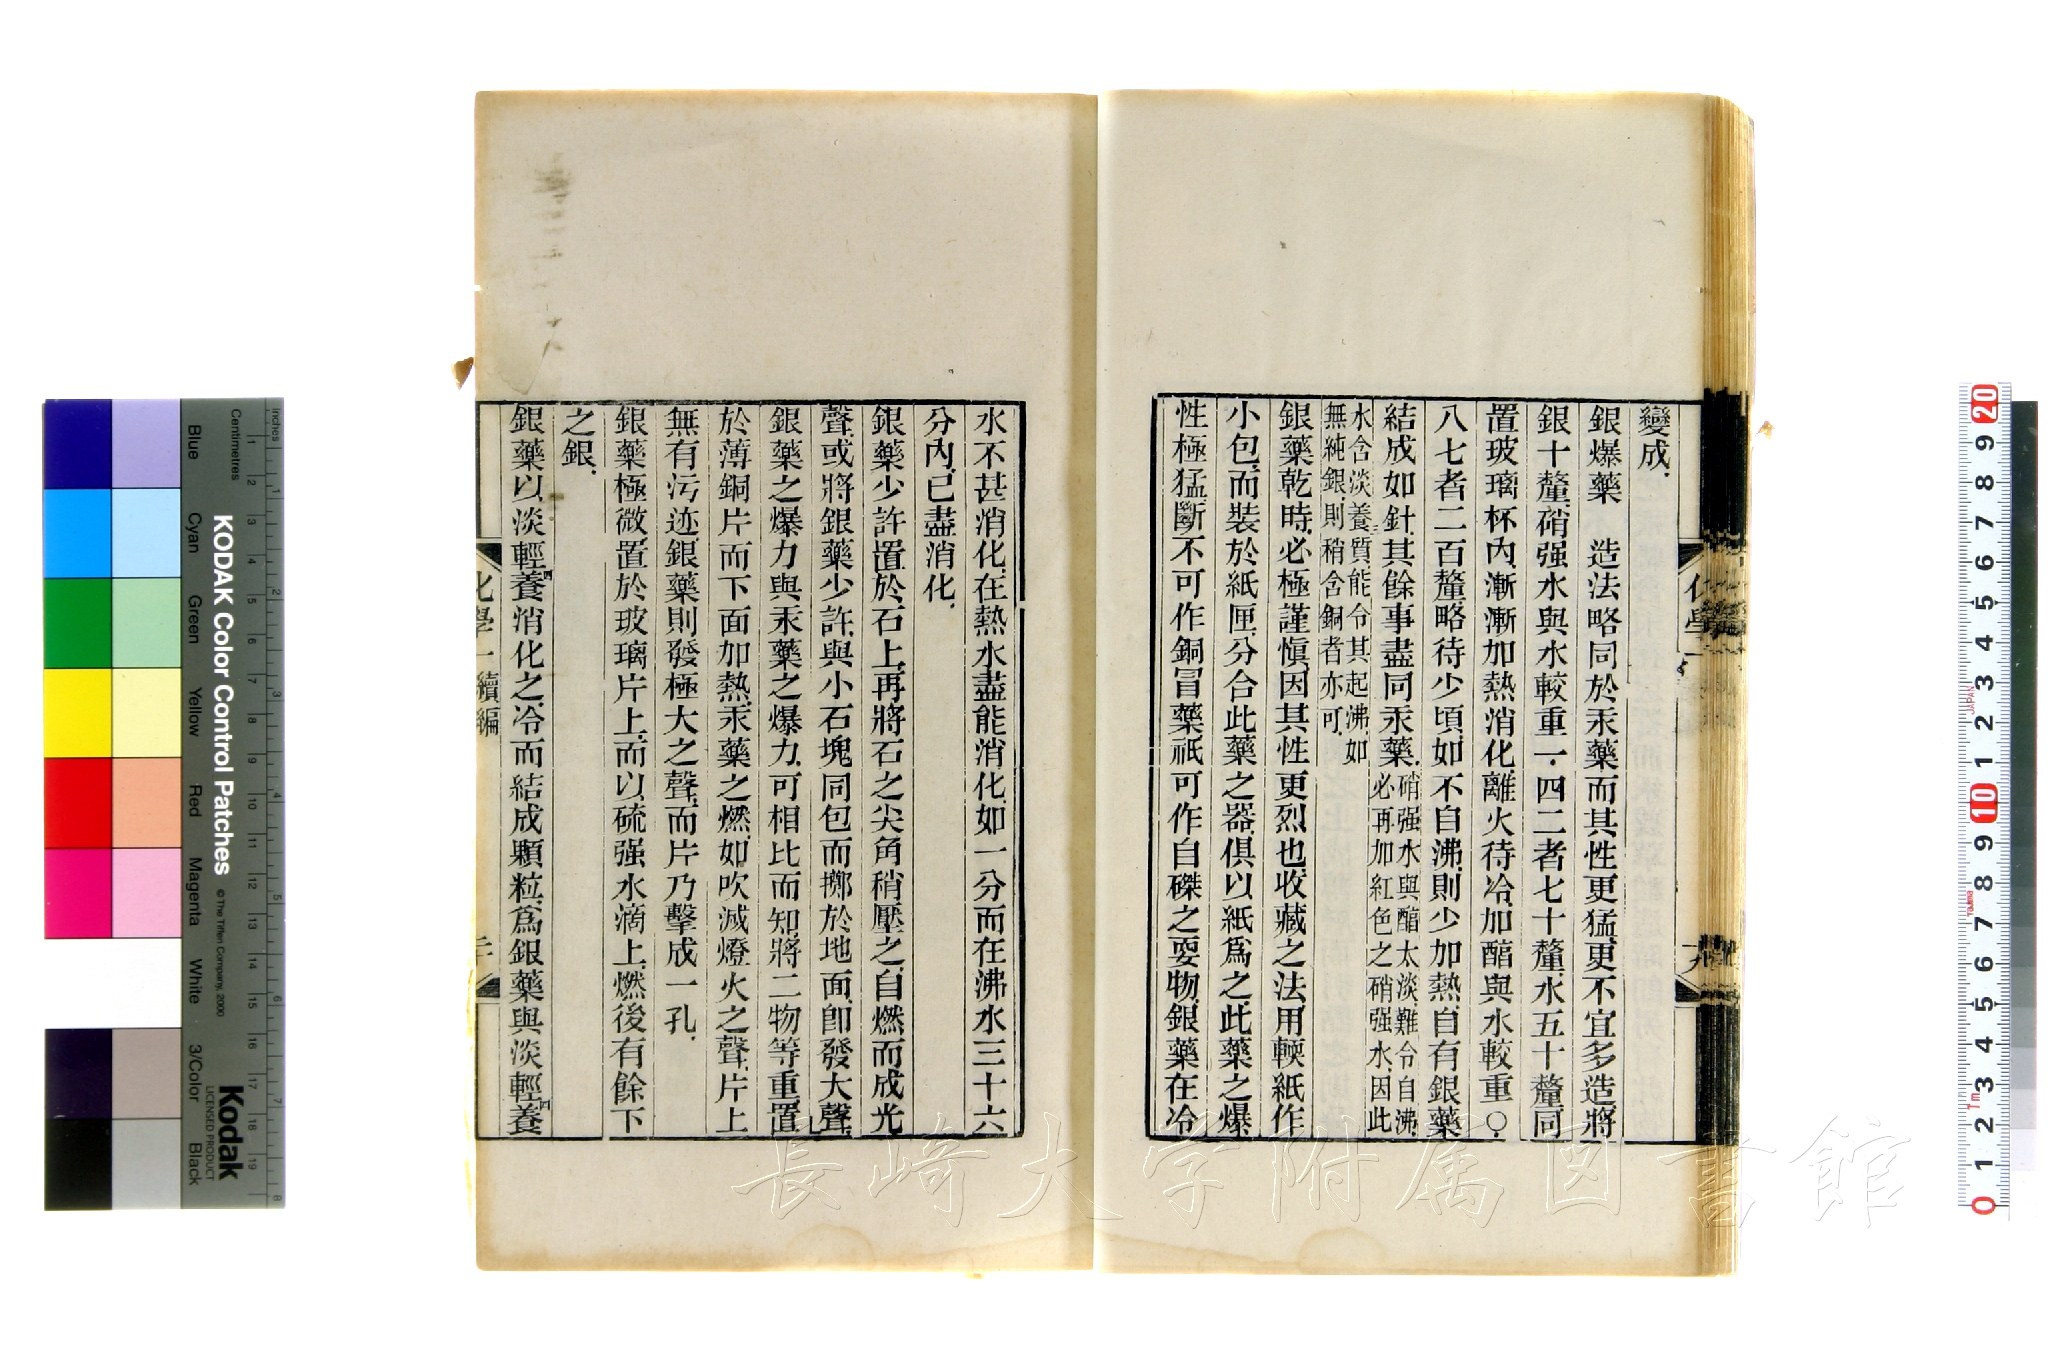 變成.
銀爆藥　造法略同於汞藥而其性更猛.更不宜多造.將
銀十釐.硝强水與水較重一.四二者七十釐.水五十釐.同
置玻璃杯內.漸漸加熱消化.離火待冷.加醕與水較重〇.
八七者二百釐.略待少頃.如不自沸.則少加熱.自有銀藥
結成如針.其餘事盡同汞藥.硝强水與醕太淡.難令自沸.必再加紅色之硝强水.因此
水含淡養質.能令其起沸.如無純銀.則稍含銅者亦可.
銀藥乾時.必極謹愼.因其性更烈也.收藏之法.用輭紙作
小包.而裝於紙匣.分合此藥之器.俱以紙爲之.此藥之爆
性極猛.斷不可作銅冒藥.祇可作自磔之耍物.銀藥在冷
化學
十九
水不甚消化.在熱水盡能消化.如一分而在沸水三十六
分內.已盡消化.
銀藥少許.置於石上.再將石之尖角稍壓之.自燃而成光
聲.或將銀藥少許.與小石塊同包而擲於地面.卽發大聲.
銀藥之爆力.與汞藥之爆力.可相比而知.將二物等重.置
於薄銅片而下面加熱.汞藥之燃.如吹滅燈火之聲.片上
無有污迹.銀藥則發極大之聲.而片乃擊成一孔.
銀藥極微.置於玻璃片上.而以硫强水滴上.燃後有餘下
之銀.
銀藥以淡輕四養消化之.冷而結成顆粒.爲銀藥與淡輕四養
化學一續編
二十
長崎大学附属図書館
KODAK Color Control Patches
© The Tiffen Company, 2000
Kodak
LICENSED PRODUCT
Inches
Centimetres
Blue
Cyan
Green
Yellow
Red
Magenta
White
3/Color
Black